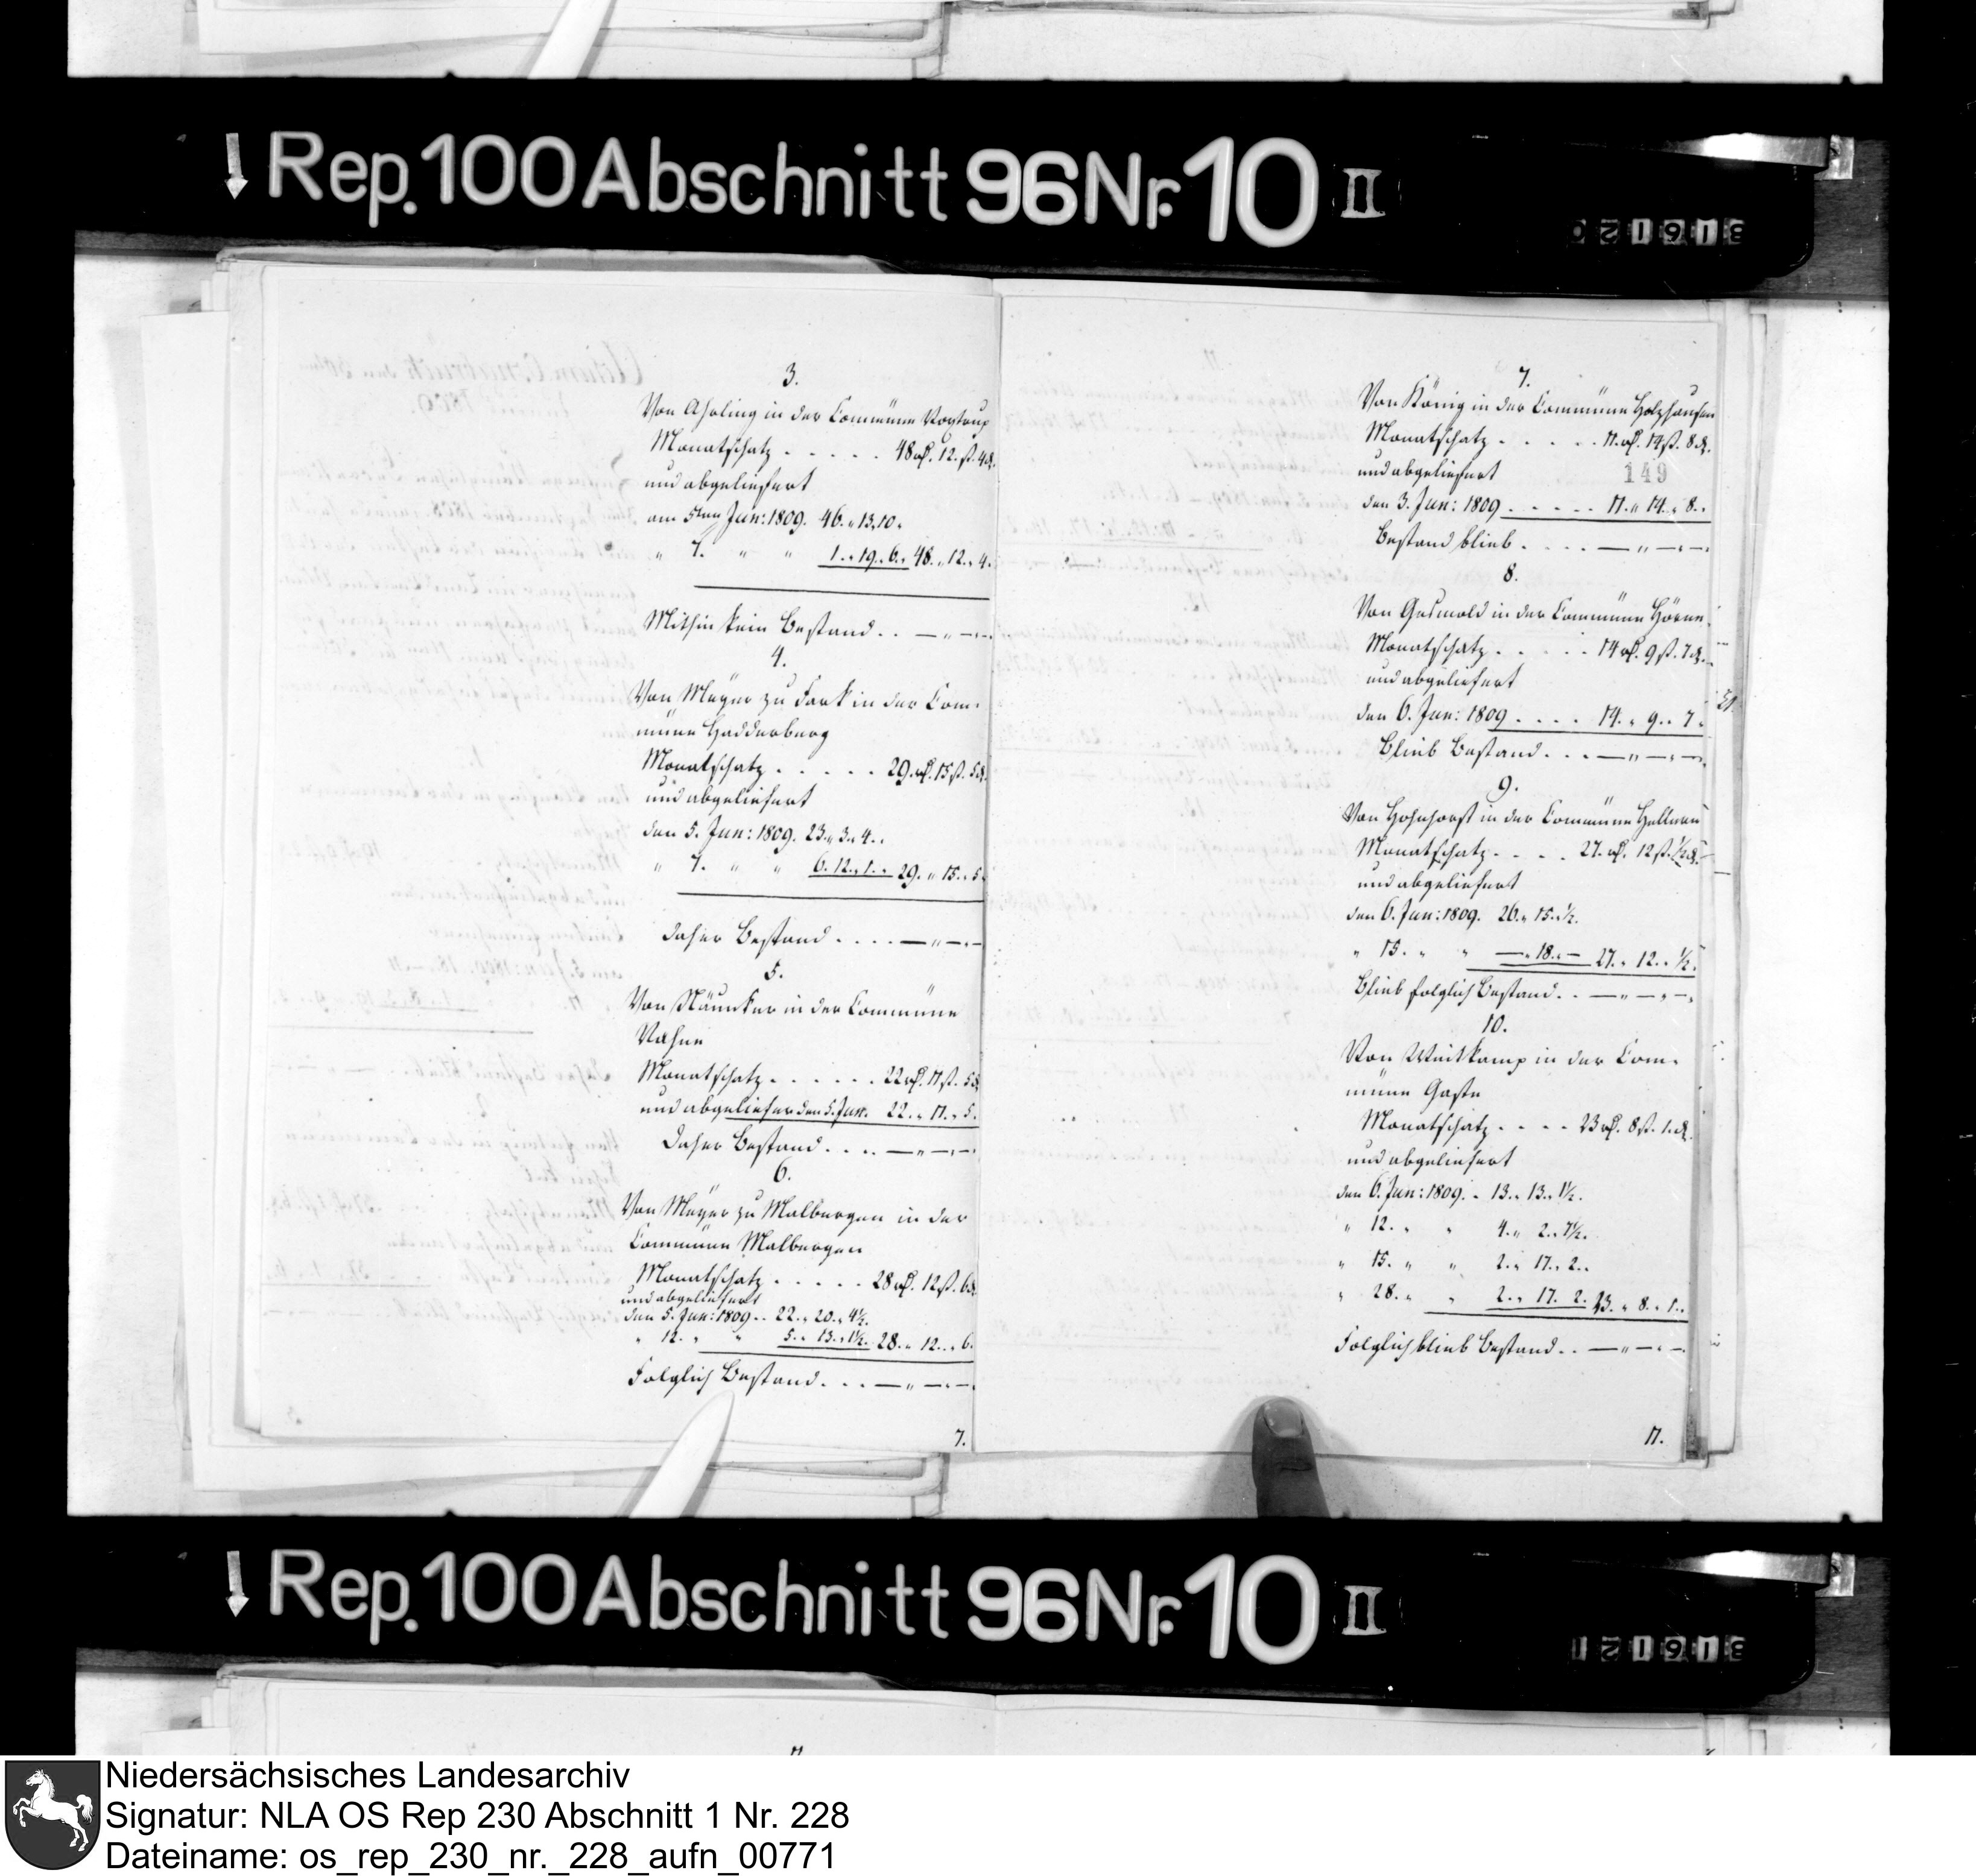 Rep. 100 Abschnitt 96 Nr. 10 II
3.
Von Ahrling in der Commüne Voxtrup
Monatschatz . . . . . 48 rß. 12. ß. 4 d.
und abgeliefert
am 5ten Jun: 1809. 46. " 13, 10.
" 7. " " 1. . 19. . 6. . 48. . 12. . 4.
Mithin kein Bestand . . — " — " —
4.
Von Meyer zu Fark in der Com-
müne Hadderberg
Monatschatz . . . . . 29. rß. 15 ß. 5 d.
und abgeliefert
den 5. Jun: 1809. 23. . 3. . 4. .
" 7. " " 6. 12. . 1. . 29. " 15. . 5.
Daher Bestand . . . . — " — " —
5.
Von in der Commüne
Nahne
Monatschatz . . . . . . 22 rß. 11 ß. 5 d.
und abgeliefer den 5. Jun. 22. " 11. . 5.
Daher Bestand . . . . — " — " —
6.
Von Meyer zu Malbergen in der
Commüne Malbergen
Monatschatz . . . . . 28 rß. 12 ß. 6 d.
und abgeliefert
den 5. Jun: 1809 . . 22. . 20. . 4½.
" 12. " " 5. . 13. . 1½. 28. " 12. . 6.
Folglich Bestand . . . — " — " —
7.
7.
Von König in der Commüne Holzhausen
Monatschatz . . . . . 11. rß. 14 ß. 8 d.
und abgeliefert
149
den 3. Jun: 1809 . . . . . 11. " 14. . 8. .
Bestand blieb . . . . — " — " —
8.
Von Gesmold in der Commüne Hörne
Monatschatz . . . . . 14 rß. 9 ß. 7 d.
und abgeliefert
den 6. Jun: 1809 . . . . 14. " 9. . 7.
Blieb Bestand . . . — " — " —
9.
Von Hohnhorst in der Commüne Hellern
Monatschatz . . . . 27. rß. 12 ß. ½ d.
und abgeliefert
den 6. Jun: 1809. 26. . 15. . ½.
" 15. " " — . 18. . — 27. " 12. . ½.
Blieb folglich Bestand . . — " — " —
10.
Von Weitkamp in der Com-
müne Gaste
Monatschatz . . . . 23 rß. 8 ß. 1. d.
und abgeliefert
den 6. Jun: 1809. . 13. . 13. . 1½.
" 12. " " 4. " 2. . 7½.
" 15. " " 2. . 17. . 2. .
" 28. " " 2. . 17. 2. 23. " 8. . 1. .
Folglich blieb Bestand . . — " — " —
11.
Rep. 100 Abschnitt 96 Nr. 10 II
Niedersächsisches Landesarchiv
Signatur: NLA OS Rep 230 Abschnitt 1 Nr. 228
Dateiname: os_rep_230_nr._228_aufn_00771